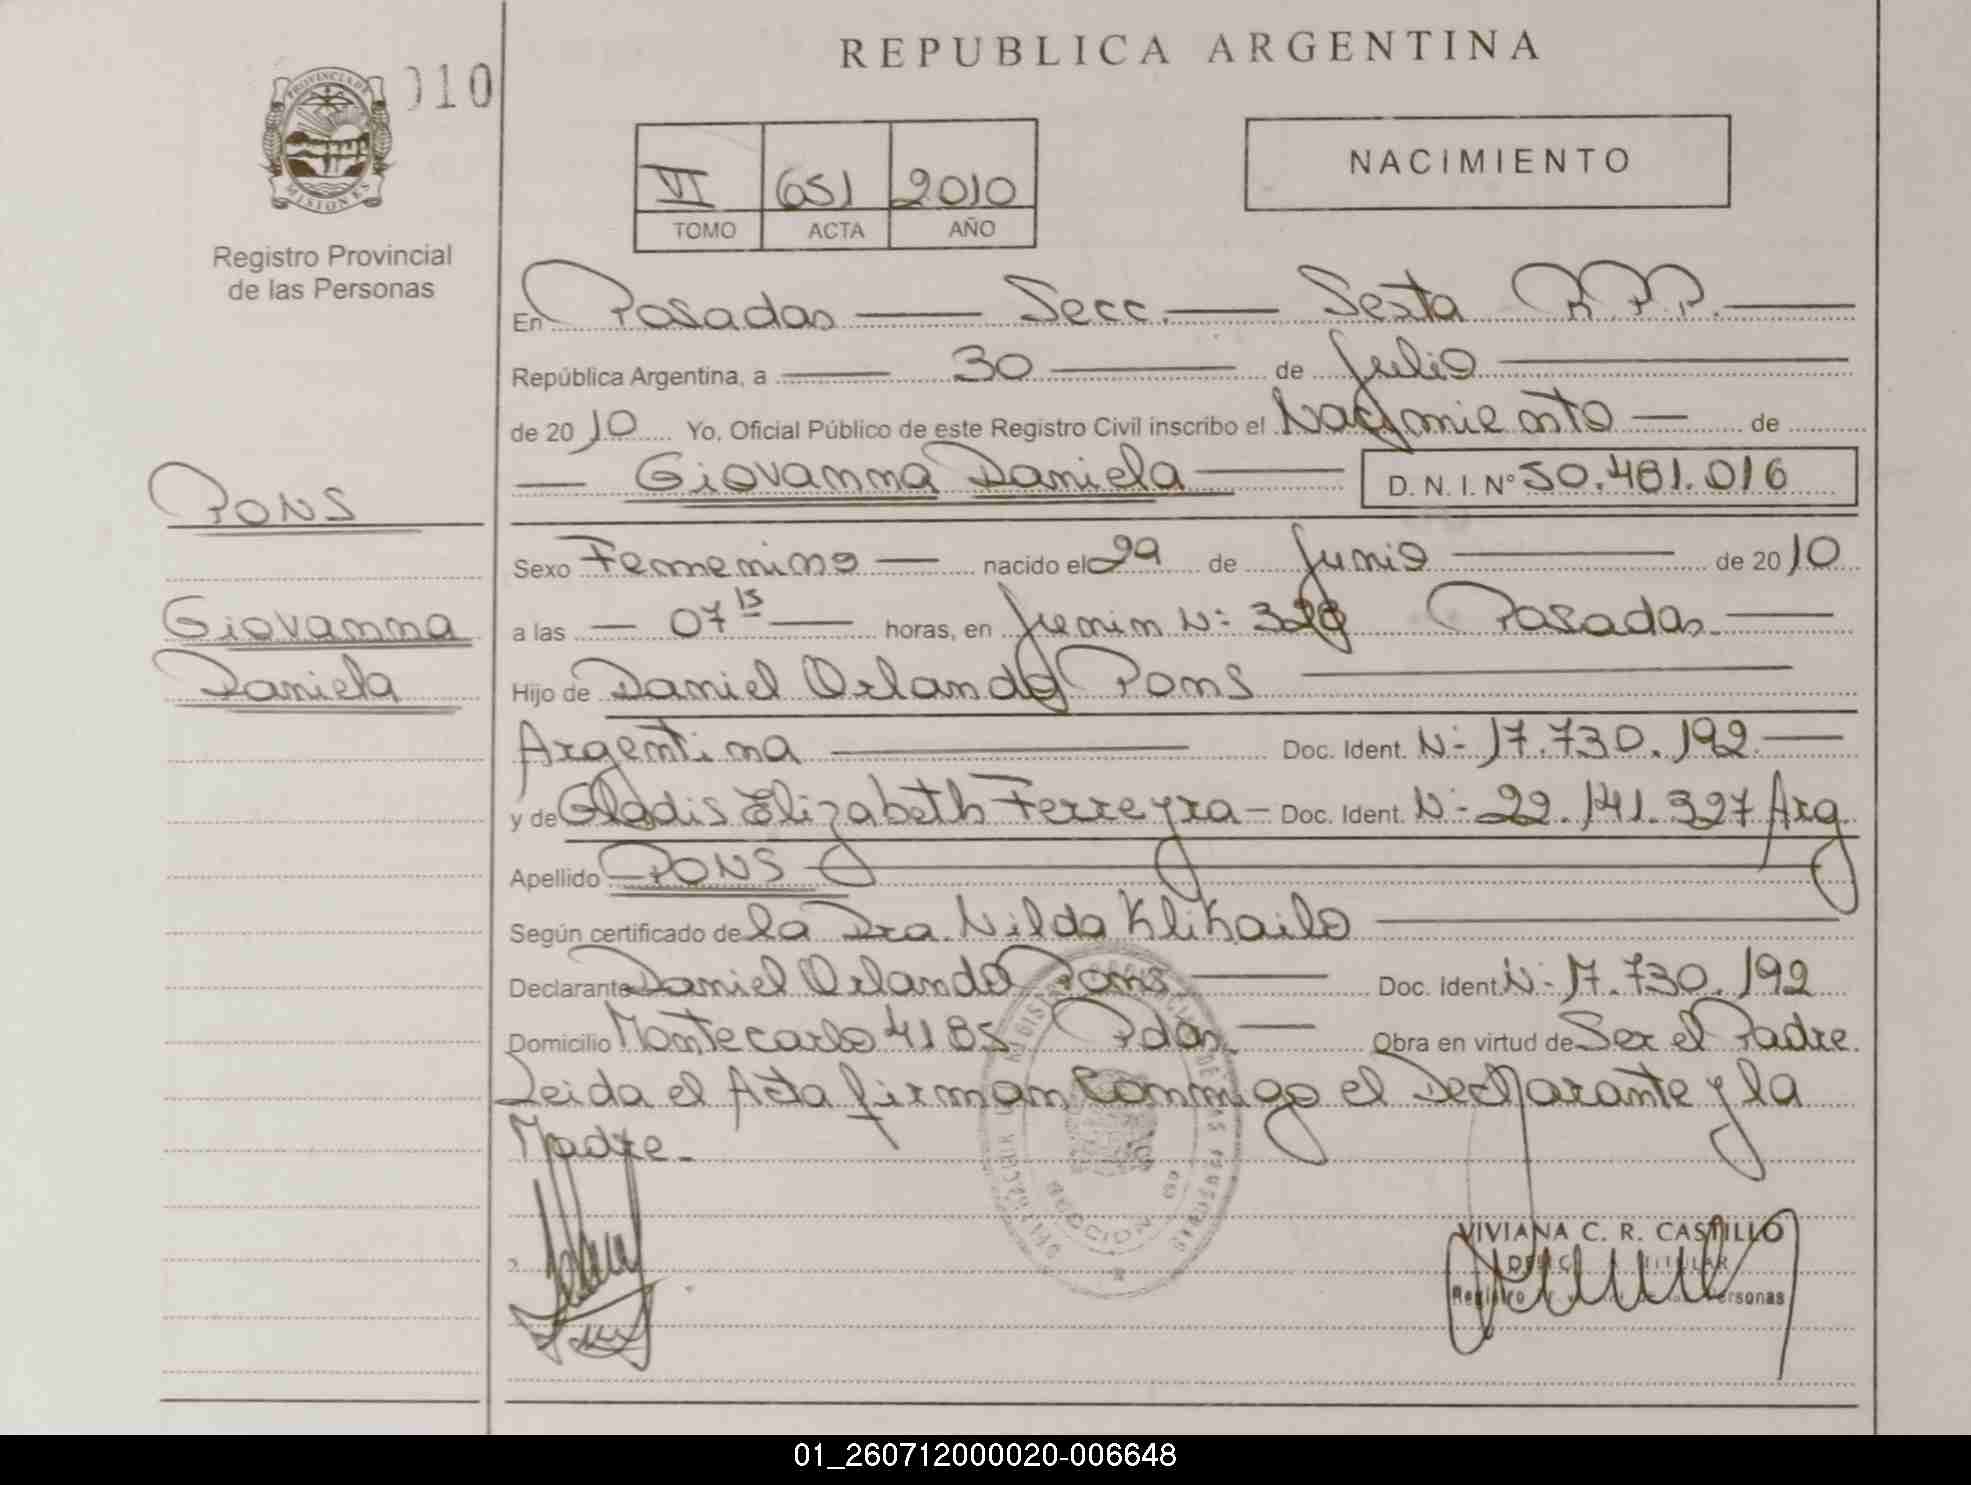 REPUBLICA ARGENTINA
010
PROVINCIA DE
MISIONES
Registro Provincial
de las Personas
VI 651 2010
TOMO ACTA AÑO
NACIMIENTO
En Posadas — Secc. — Sexta R.P.P. —
República Argentina, a — 30 — de Julio —
de 2010 Yo, Oficial Público de este Registro Civil inscribo el Nacimiento — de
— Giovanna Daniela — D. N. I. Nº 50.481.016
PONS
Giovanna
Daniela
Sexo Femenino — nacido el 29 de Junio — de 2010
a las — 07 15 — horas, en Junin Nº 329 Posadas —
Hijo de Daniel Orlando Pons —
Argentina — Doc. Ident. Nº 17.730.192 —
y de Gladis Elizabeth Ferreyra — Doc. Ident. Nº 22.141.327 Arg.
Apellido PONS —
Según certificado de la Dra. Nilda Klikailo —
Declarante Daniel Orlando Pons — Doc. Ident. Nº 17.730.192
Domicilio Montecarlo 4185 Pdas. — Obra en virtud de Ser el Padre.
Leida el Acta firman Conmigo el Declarante y la
Madre.-
SECCION
VIVIANA C. R. CASTILLO
TITULAR
Registro Personas
01_260712000020-006648